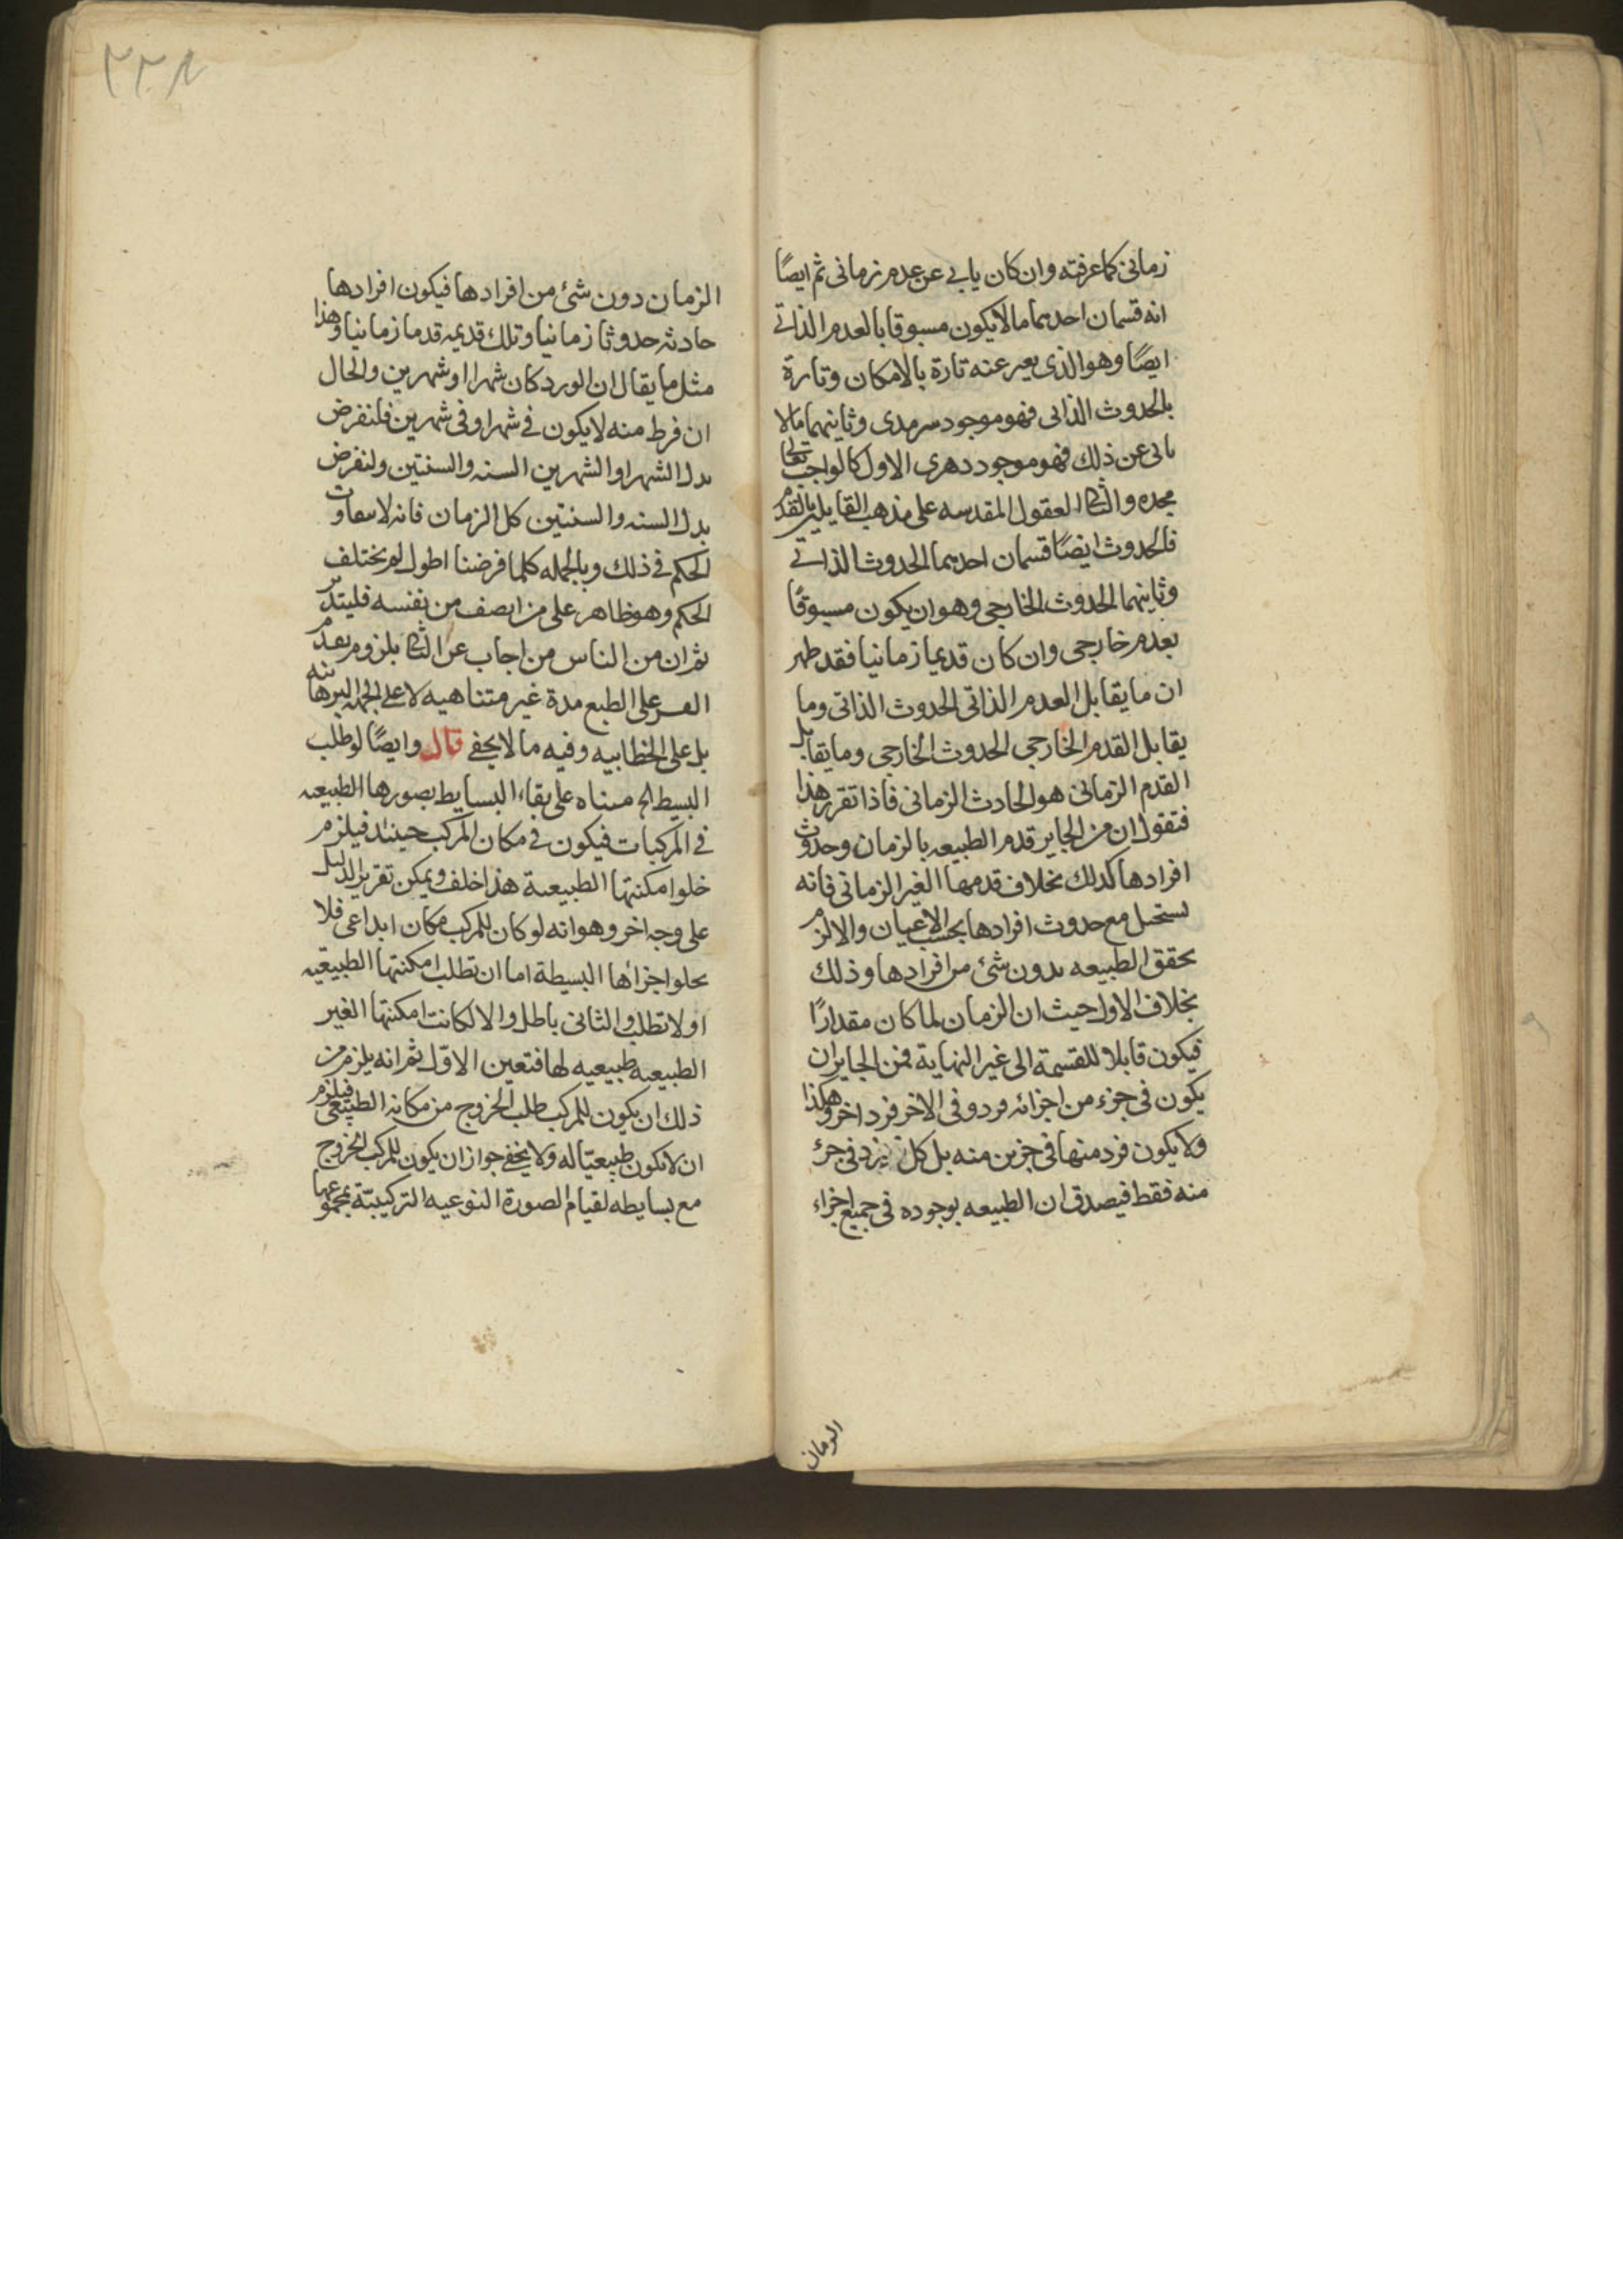 زمانی کما عرفته وان کان یابی عن عدم زمانی ثم ایضًا
انه قسمان احدهما ما لا یکون مسبوقا بالعدم الذاتی
ایضًا وهو الذی یعبر عنه تارة بالامکان وتارة
بالحدوث الذاتی فهو موجود سرمدی وثانیهما ما لا
یابی عن ذلک فهو موجود دهری الاول کالواجب تعالی
مجده والثانی العقول المقدسه علی مذهب القایلین بالقدم
فالحدوث ایضًا قسمان احدهما الحدوث الذاتی
وثانیهما الحدوث الخارجی وهو ان یکون مسبوقًا
بعدم خارجی وان کان قدیما زمانیا فقد ظهر
ان ما یقابل العدم الذاتی الحدوث الذاتی وما
یقابل القدم الخارجی الحدوث الخارجی وما یقابل
القدم الزمانی هو الحادث الزمانی فاذا تقرر هذا
فتقول ان من الجایز قدم الطبیعه بالزمان وحدوث
افرادها کذلک بخلاف قدمها الغیر الزمانی فانه
یستحیل مع حدوث افرادها بحسب الاعیان والا لزم
تحقق الطبیعه بدون شئ من افرادها وذلک
بخلاف الاول حیث ان الزمان لما کان مقدارًا
فیکون قابلا للقسمة الی غیر النهایة فمن الجایز ان
یکون فی جزء من اجزائه فرد وفی الاخر فرد اخر وهکذا
ولا یکون فرد منها فی جزین منه بل کل فرد فی جزء
منه فقط فیصدق ان الطبیعه بوجوده فی جمیع اجزاء
الزمان
۲۲۸
الزمان دون شئ من افرادها فیکون افرادها
حادثه حدوثا زمانیا وتلک قدیمه قدما زمانیا وهذا
مثل ما یقال ان الورد کان شهرا او شهرین والحال
ان فرط منه لا یکون فی شهر او فی شهرین فلنفرض
بدل الشهر او الشهرین السنه والسنتین ولنفرض
بدل السنه والسنتین کل الزمان فانه لا یتفاوت
الحکم فی ذلک وبالجمله کلما فرضنا اطول لم یختلف
الحکم وهو ظاهر علی من انصف من نفسه فلیتدبر
ثم ان من الناس من اجاب عن الثانی بلزوم بعدم
القسر علی الطبع مدة غیر متناهیه لا علی الجهه البرهانیه
بل علی الخطابیه وفیه ما لا یخفی قال وایضًا لو طلب
البسیط الخ مبناه علی بقاء البسایط بصورها الطبیعیه
فی المرکبات فیکون فی مکان المرکب حینئذ فیلزم
خلو امکنتها الطبیعیة هذا خلف ویمکن تقریر الدلیل
علی وجه اخر وهو انه لو کان للمرکب مکان ابداعی فلا
یخلو اجزاؤها البسیطة اما ان تطلب امکنتها الطبیعیه
او لا تطلب والثانی باطل والا لکانت امکنتها الغیر
الطبیعیه طبیعیه لها فتعین الاوّل ثم انه یلزم من
ذلک ان یکون للمرکب طلب الخروج من مکانه الطبیعی فیلزم
ان لا یکون طبیعیّا له ولا یخفی جواز ان یکون للمرکب الخروج
مع بسایطه لقیام الصورة النوعیه الترکیبیّة بمجموعها